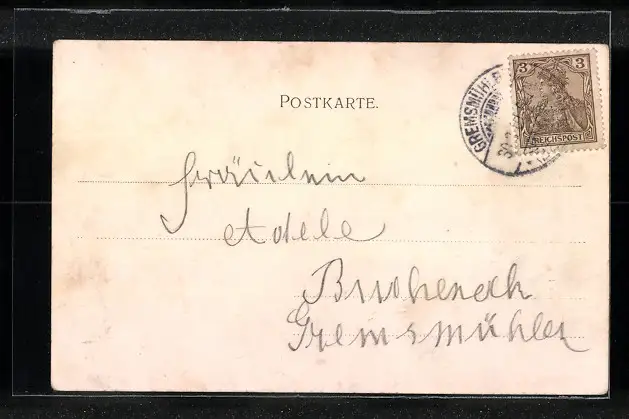 POSTKARTE.
3 3
REICHSPOST
GREMSMÜHLEN
Fräulein
Adele
Gremsmühlen